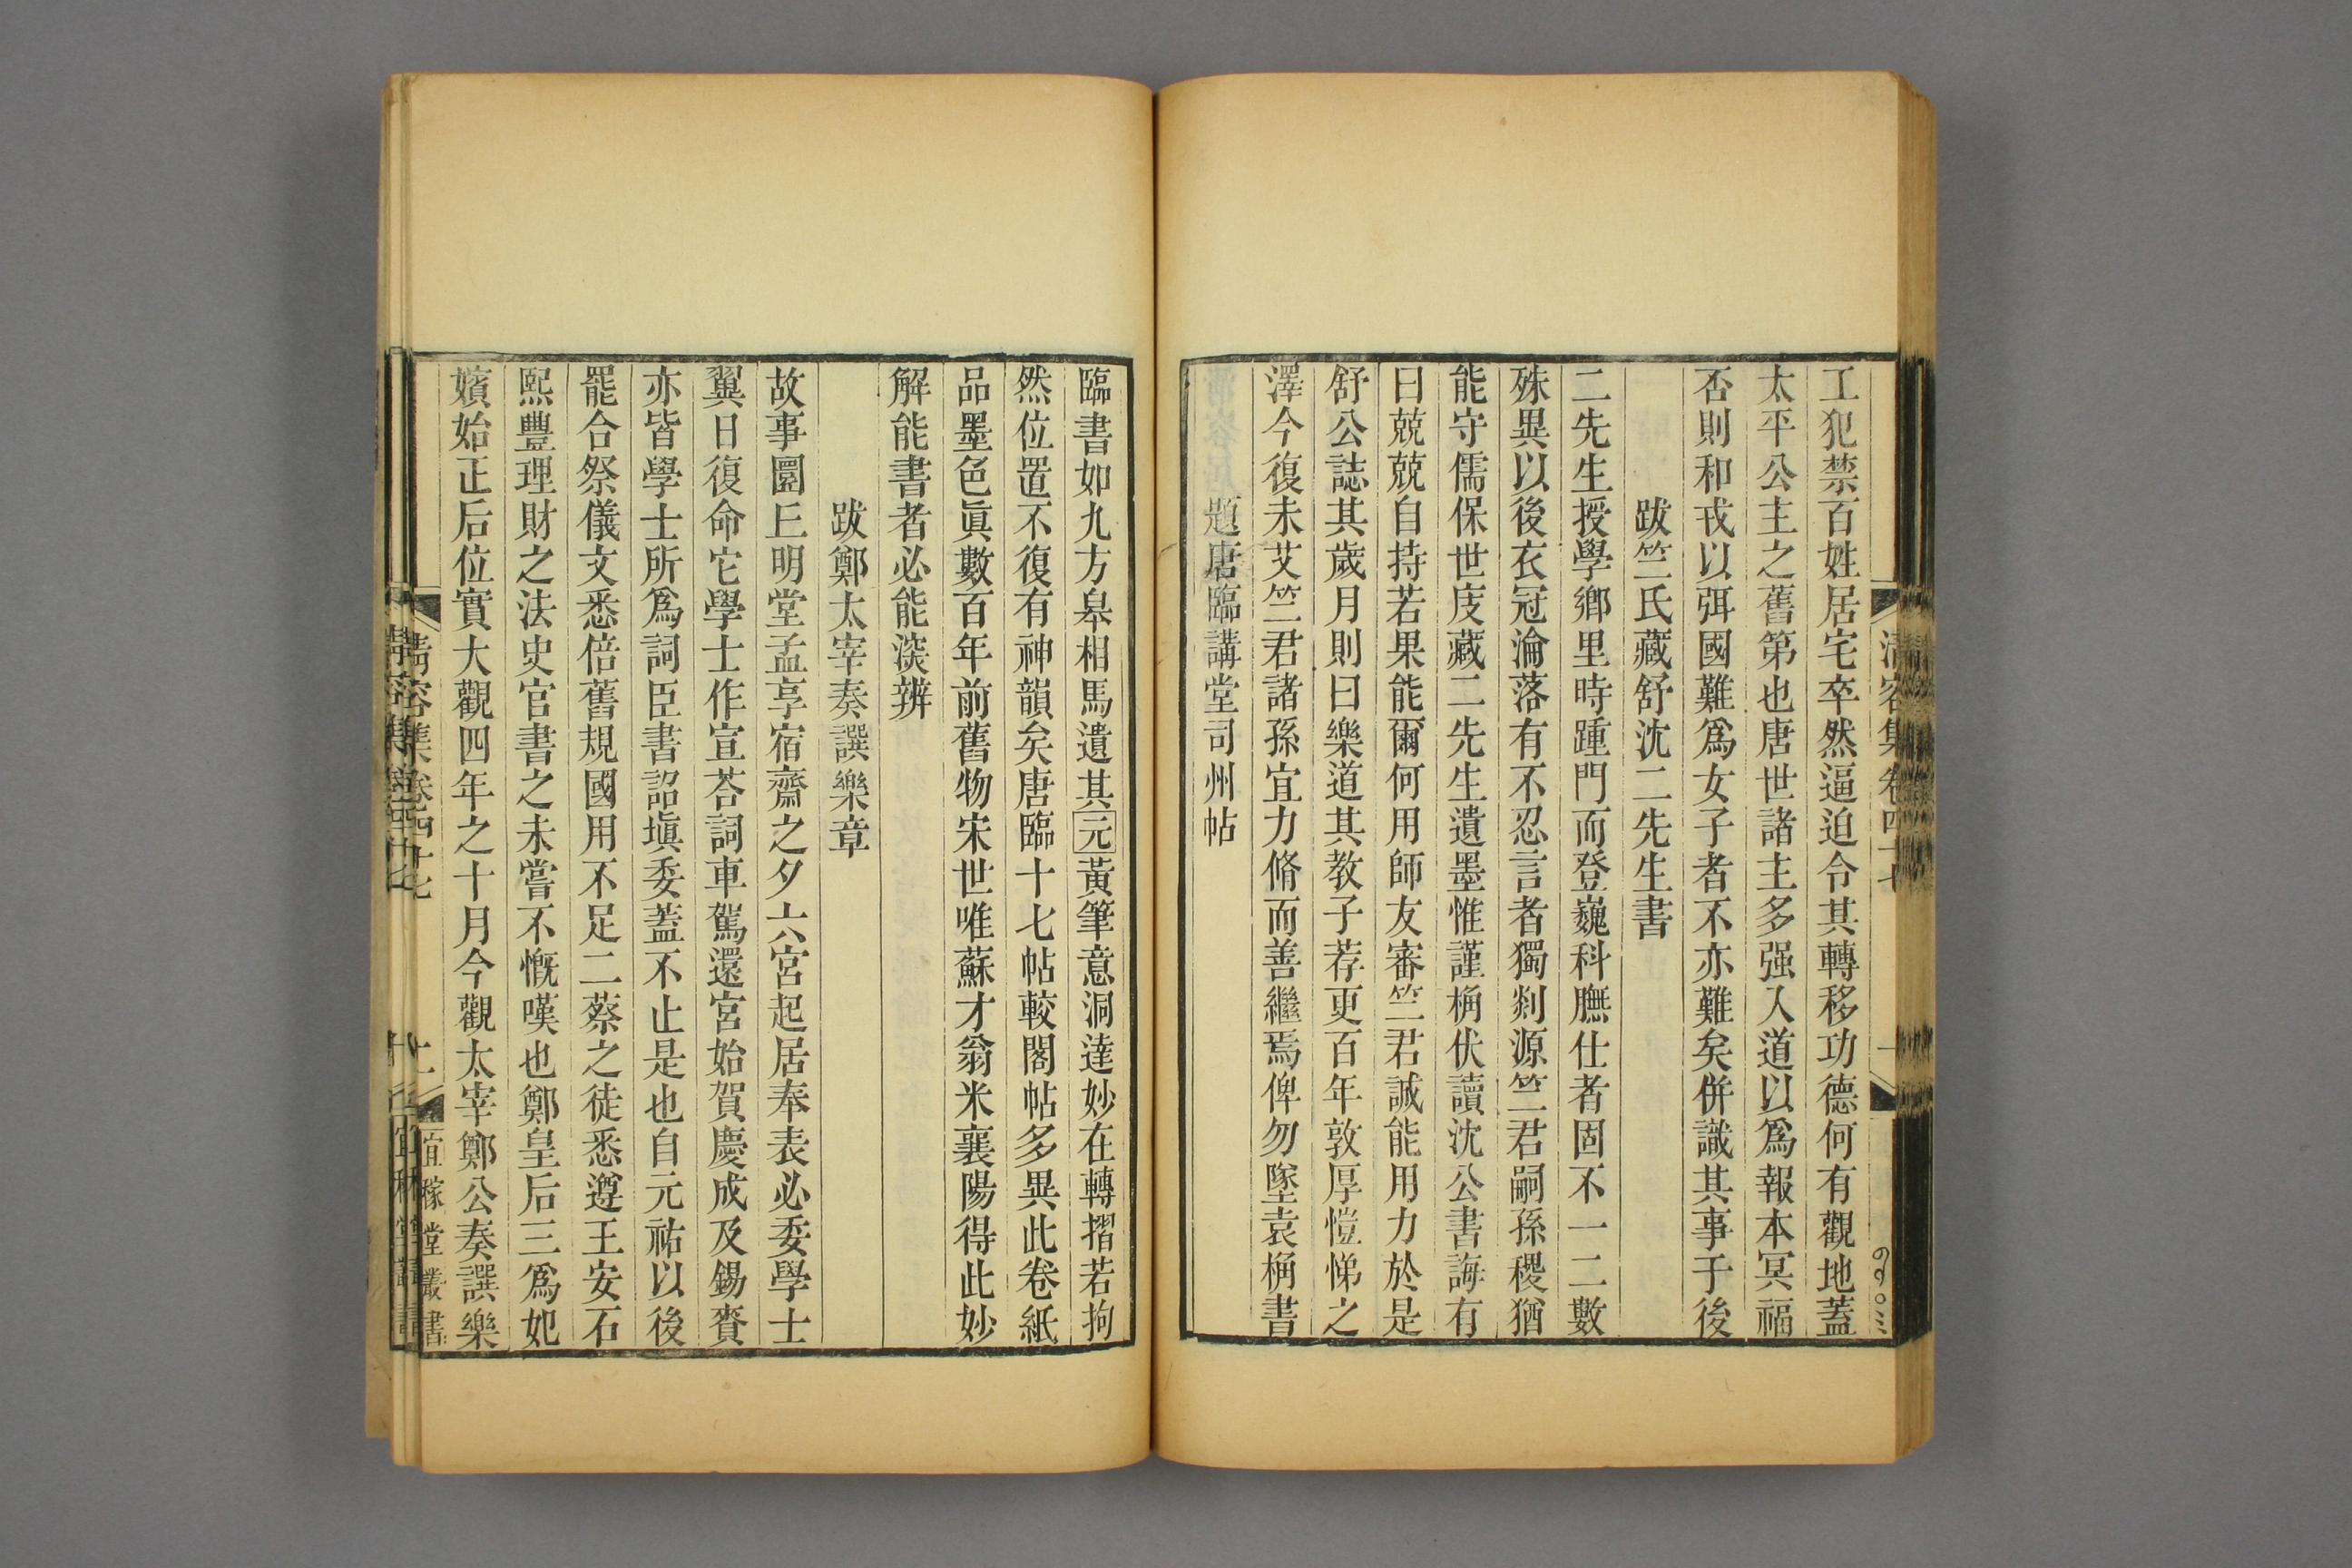 工犯禁百姓居宅卒然逼迫令其轉移功德何有觀地蓋
太平公主之舊第也唐世諸主多强入道以爲報本冥福
否則和戎以弭國難爲女子者不亦難矣併識其事于後
跋竺氏藏舒沈二先生書
二先生授學鄉里時踵門而登巍科膴仕者固不一二數
殊異以後衣冠淪落有不忍言者獨剡源竺君嗣孫稷猶
能守儒保世庋藏二先生遺墨惟謹桷伏讀沈公書誨有
曰兢兢自持若果能爾何用師友審竺君誠能用力於是
舒公誌其歲月則曰樂道其教子荐更百年敦厚愷悌之
澤今復未艾竺君諸孫宜力脩而善繼焉俾勿墜袁桷書
題唐臨講堂司州帖
臨書如九方皋相馬遺其元黃筆意洞達妙在轉摺若拘
然位置不復有神韻矣唐臨十七帖較閣帖多異此卷紙
品墨色眞數百年前舊物宋世唯蘇才翁米襄陽得此妙
解能書者必能淡辨
跋鄭太宰奏譔樂章
故事圜丘明堂孟享宿齋之夕六宮起居奉表必委學士
翼日復命它學士作宣荅詞車駕還宮始賀慶成及錫賚
亦皆學士所爲詞臣書詔塡委蓋不止是也自元祐以後
罷合祭儀文悉倍舊規國用不足二蔡之徒悉遵王安石
熙豐理財之法史官書之未嘗不慨嘆也鄭皇后三爲妃
嬪始正后位實大觀四年之十月今觀太宰鄭公奏譔樂
清容集卷四十七
十一
宜稼堂叢書